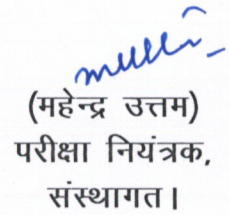 (महेन्द्र उत्तम)
परीक्षा नियंत्रक,
संस्थागत।